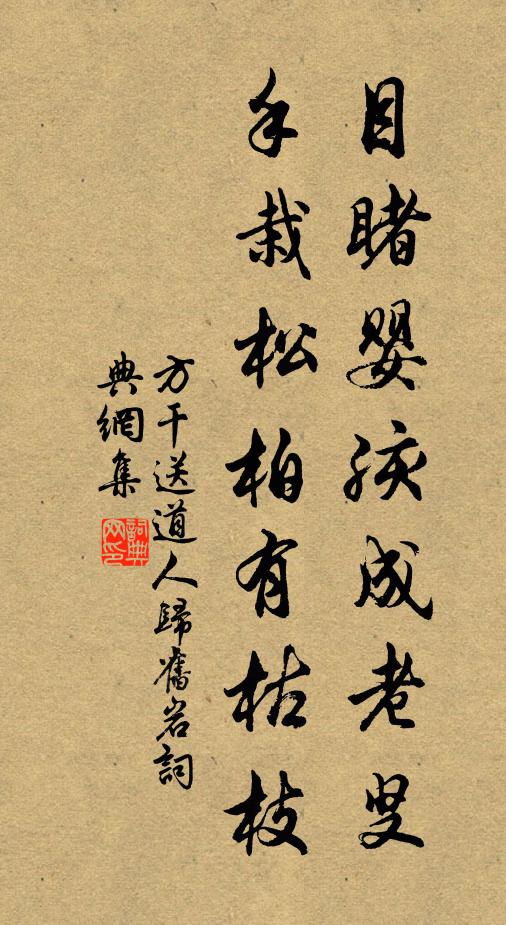 目睹嬰孩成老叟
手栽松柏有枯枝
方干送道人歸舊岩詞
典網集
詞典网印